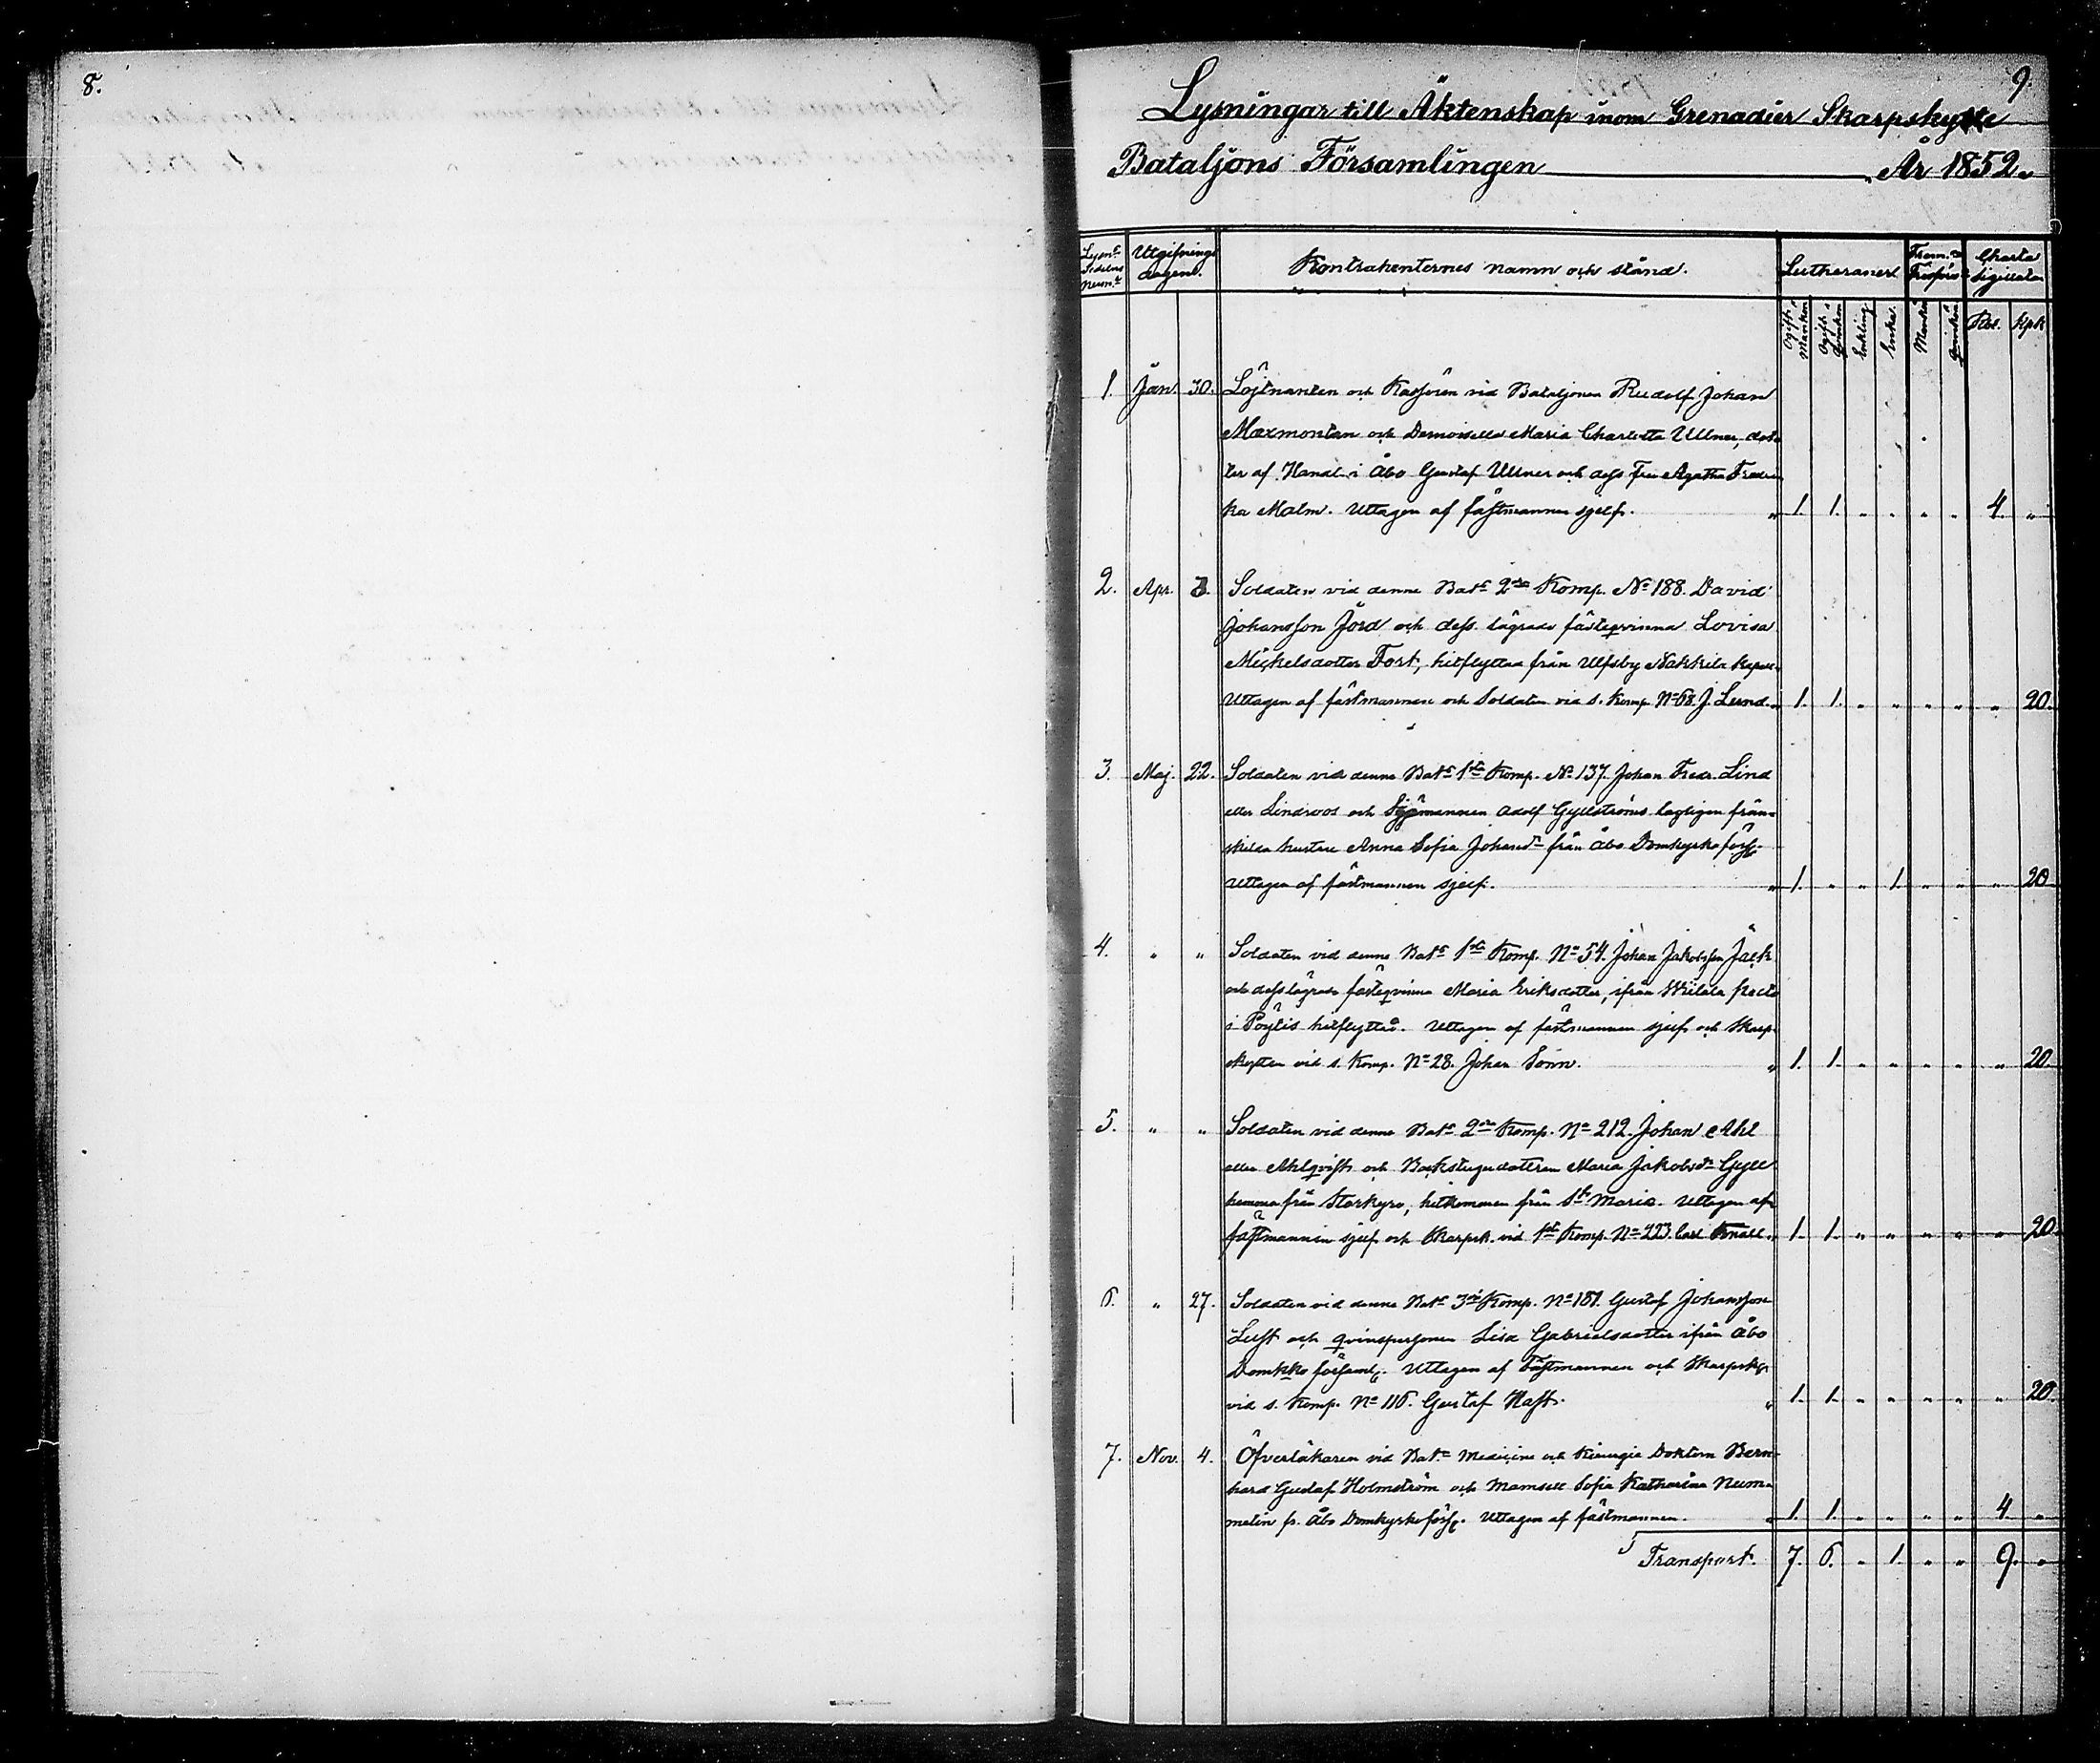 8.
9.
Lysningar till Äktenskap inom Grenadier Skarpskytte
Bataljons Församlingen År 1852.
Lysn:s Sedelns Num:r
Utgifnings dagen.
Kontrahenternes namn och stånd.
Lutheraner
Charta Sigillata
Ogift Mankön
Ogift Qvinkön
Enkling
Enka
Mankön
Qvinkön
Rbl.
Kpk
1. Jan. 30. Löjtnanten och Kassören vid Bataljonen Rudolf Johan
Maxmontan och Demoiselle Maria Charlotta Ullner, dot-
ter af Handl. i Åbo Gustaf Ullner och dess Fru Agatha Fredri
ka Malm. Uttagen af fästmannen sjelf. " 1. 1. " " " " 4. "
2. Apr. 3. Soldaten vid denne Bat:s 2:dra Komp. No 188. David
Johansson Jord och dess lägrade fästeqvinna Lovisa
Mickelsdotter Fort, hitflyttad från Ulfsby Nakkila Kapell.
Uttagen af fästmannen och Soldaten vid s. Komp. No 68. J. Lund. " 1. 1. " " " " " 20.
3. Maj. 22. Soldaten vid denne Bat:s 1:sta Komp. No 137. Johan Fredr. Lind
eller Lindroos och Sjömannen Adolf Gyllströms lagligen från-
skilda hustru Anna Sofia Johansd:r från Åbo Domkyrko förs.
Uttagen af fästmannen sjelf. " 1. " " 1. " " " 20
4. " " Soldaten vid denne Bat:s 1:sta Komp. No 54. Johan Jakobsson Jäck
och dess lägrade fästeqvinna Maria Eriksdotter, ifrån
i Pöytis hitflyttad. Uttagen af fästmannen sjelf och Skarp-
skytten vid s. Komp. No 28. Johan Sönn. " 1. 1. " " " " " 20.
5. " " Soldaten vid denne Bat:s 2:dra Komp. No 212. Johan Ahl
eller Ahlqvist och Backstugudottren Maria Jakobsd:r Gyll
från Storkyro, hitkommen från S:t Marie. Uttagen af
fästmannen sjelf och Skarpsk. vid 1:sta Komp. No 223. Carl Knall. " 1. 1. " " " " " 20.
6. " 27. Soldaten vid denne Bat:s 3:dje Komp. No 181. Gustaf Johansson
Lust och qvinspersonen Lisa Gabrielsdotter ifrån Åbo
Domkko församl. Uttagen af Fästmannen och Skarpsk.
vid s. Komp. No 116. Gustaf Hast. " 1. 1. " " " " " 20.
7. Nov. 4. Öfverläkaren vid Bat:n Medicine och Kirurgie Doktorn Bern-
hard Gustaf Holmström och Mamsell Sofia Katharina Num-
melin fr. Åbo Domkyrkoförs. Uttagen af fästmannen. " 1. 1. " " " " 4. "
Transport. 7. 6. " 1. " " 9. "